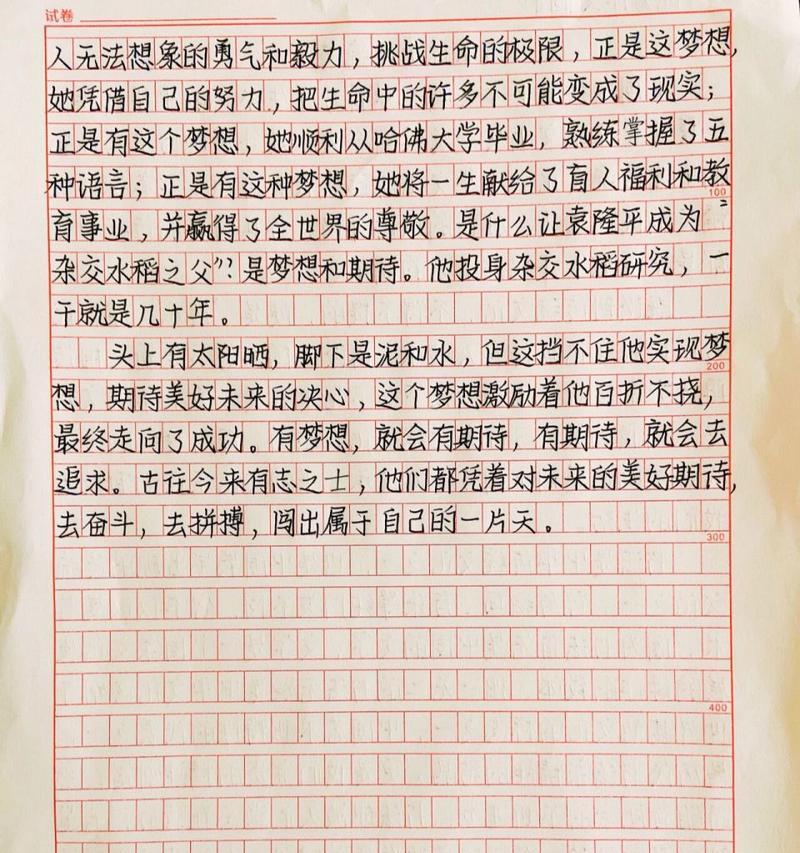 试卷
人无法想象的勇气和毅力，挑战生命的极限，正是这梦想，
她凭借自己的努力，把生命中的许多不可能变成了现实；
正是有这个梦想，她顺利从哈佛大学毕业，熟练掌握了五
种语言；正是有这种梦想，她将一生献给了盲人福利和教
100
育事业，并赢得了全世界的尊敬。是什么让袁隆平成为“
杂交水稻之父”？是梦想和期待。他投身杂交水稻研究，一
干就是几十年。
头上有太阳晒，脚下是泥和水，但这挡不住他实现梦
200
想，期待美好未来的决心，这个梦想激励着他百折不挠，
最终走向了成功。有梦想，就会有期待，有期待，就会去
追求。古往今来有志之士，他们都凭着对未来的美好期待，
去奋斗，去拼搏，闯出属于自己的一片天。
300
400